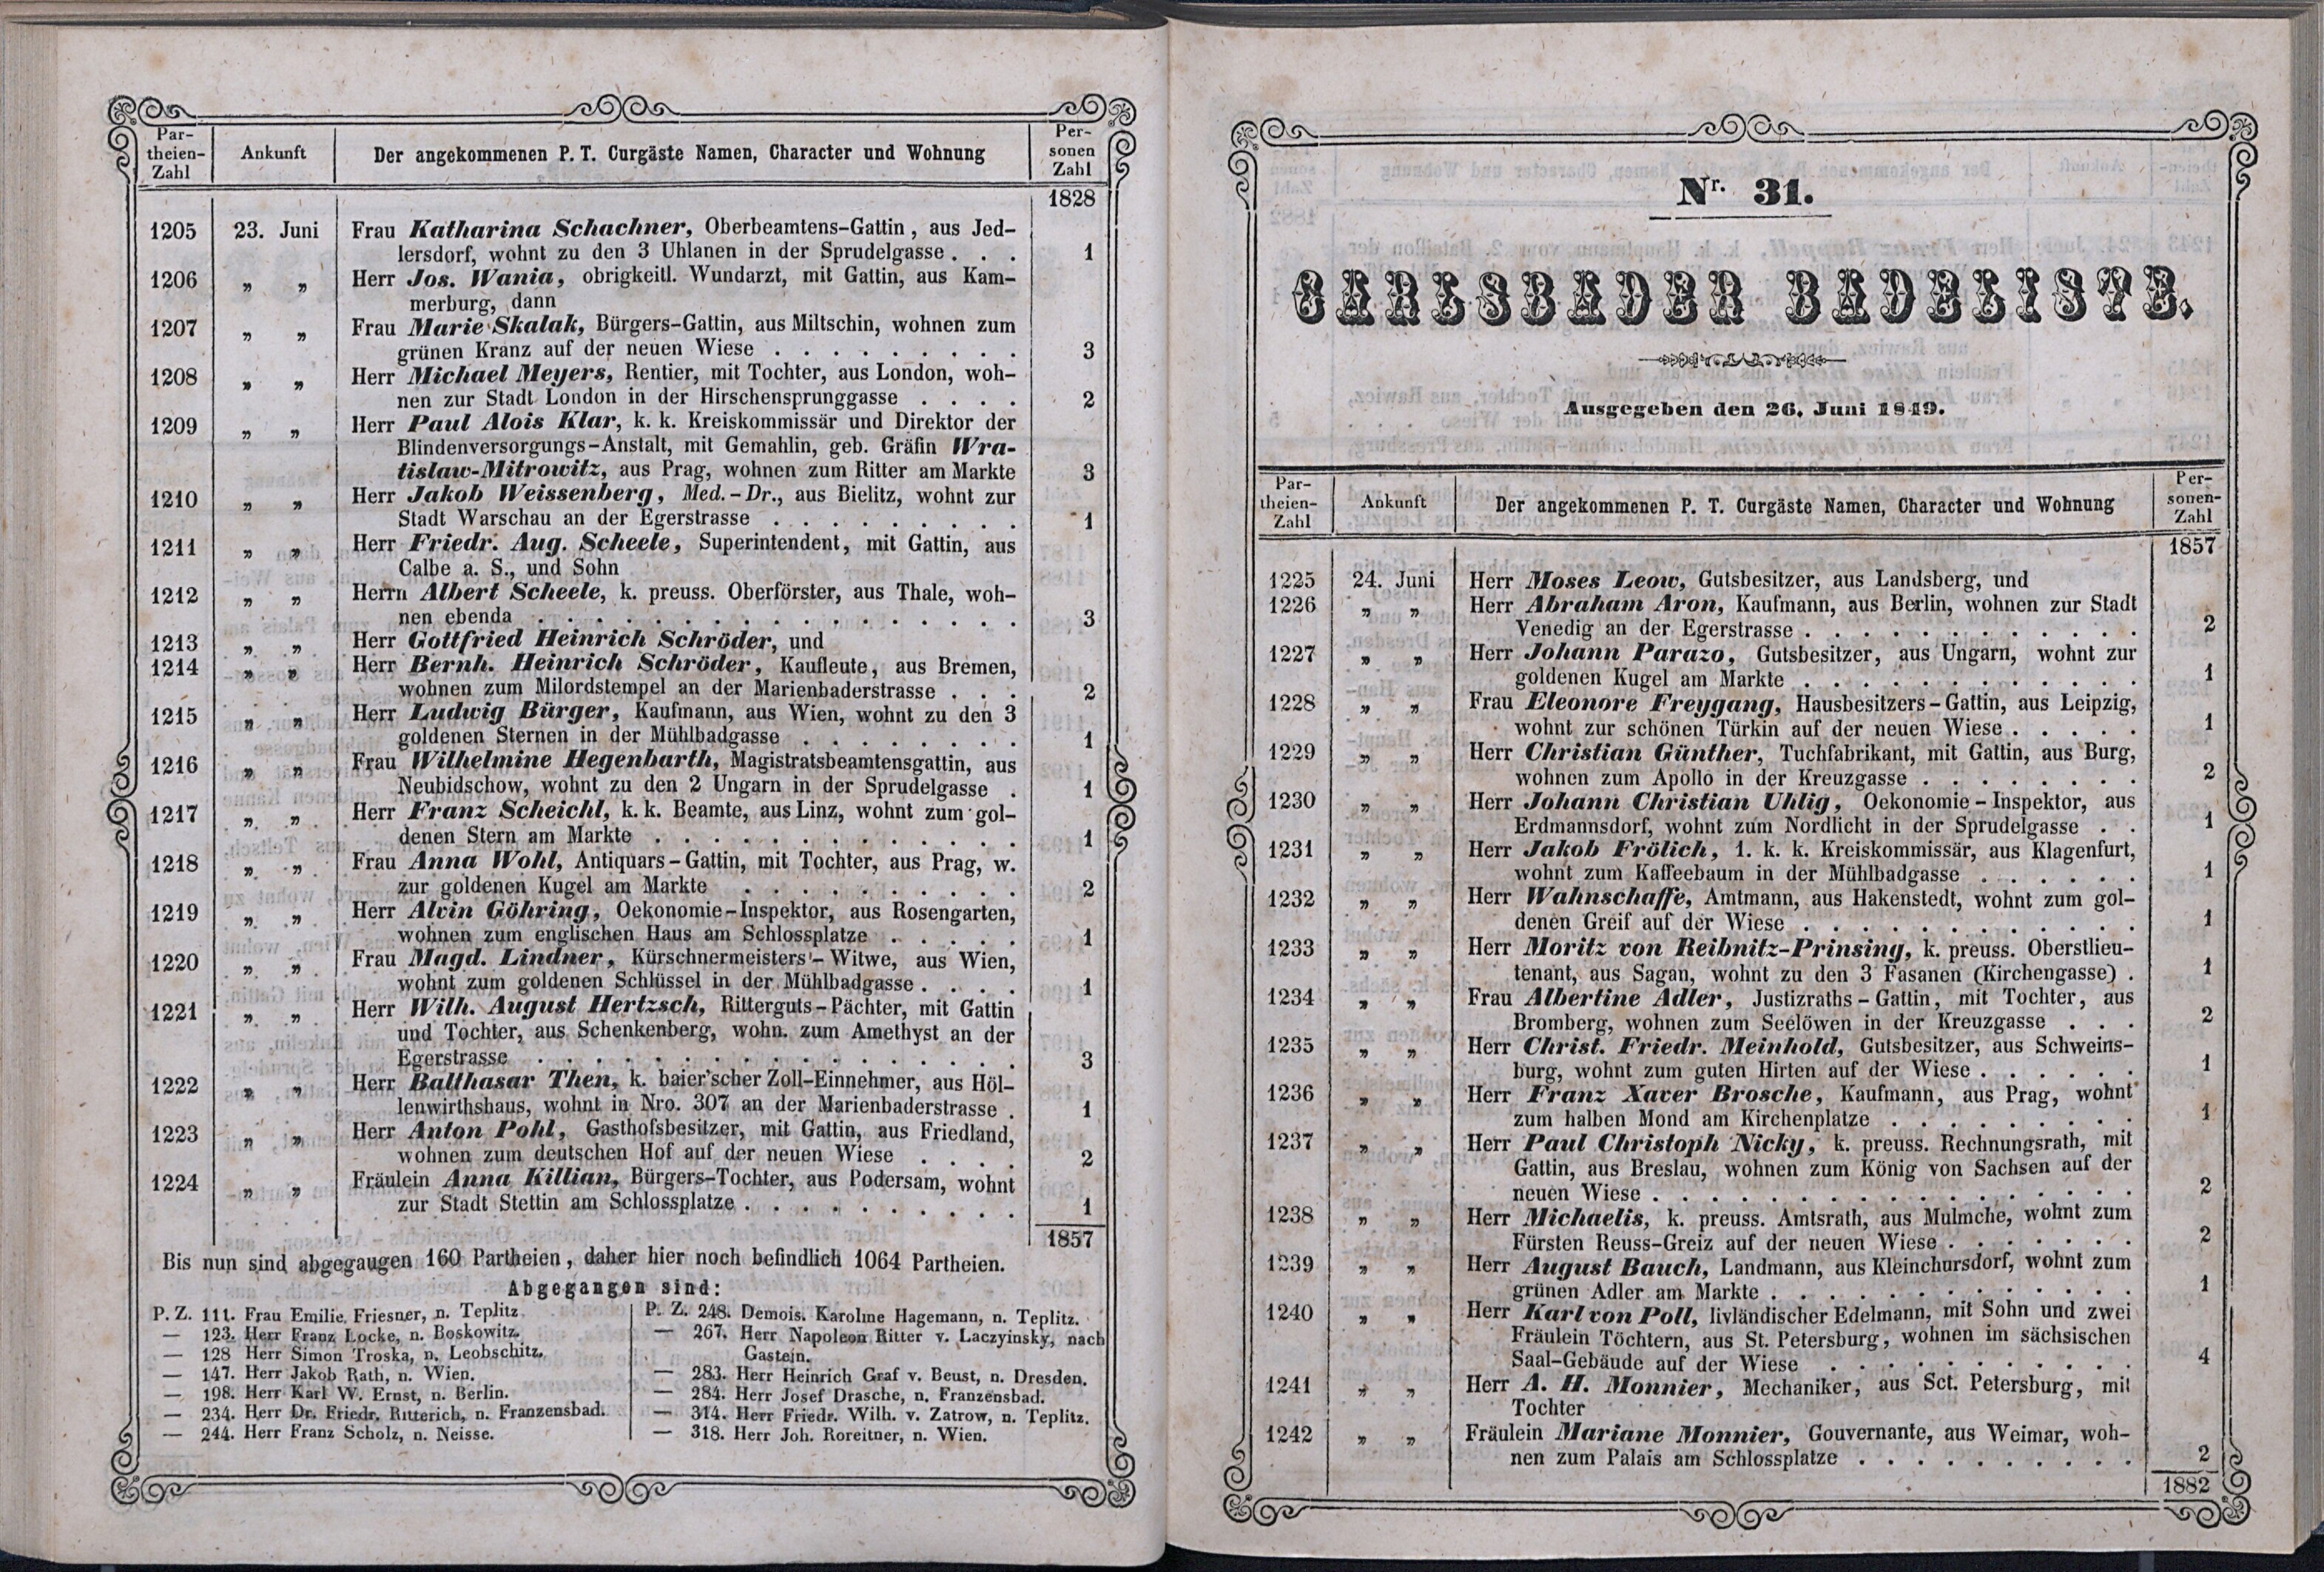 Par-
theien-
Zahl
Ankunft
Der angekommenen P. T. Curgäste Namen, Character und Wohnung
Per-
sonen
Zahl
1828
1205 23. Juni Frau Katharina Schachner, Oberbeamtens-Gattin, aus Jed-
lersdorf, wohnt zu den 3 Uhlanen in der Sprudelgasse . . . 1
1206 „ „ Herr Jos. Wania, obrigkeitl. Wundarzt, mit Gattin, aus Kam-
merburg, dann
1207 „ „ Frau Marie Skalak, Bürgers-Gattin, aus Miltschin, wohnen zum
grünen Kranz auf der neuen Wiese . . . . . . . . . 3
1208 „ „ Herr Michael Meyers, Rentier, mit Tochter, aus London, woh-
nen zur Stadt London in der Hirschensprunggasse . . . . 2
1209 „ „ Herr Paul Alois Klar, k. k. Kreiskommissär und Direktor der
Blindenversorgungs-Anstalt, mit Gemahlin, geb. Gräfin Wra-
tislaw-Mitrowitz, aus Prag, wohnen zum Ritter am Markte 3
1210 „ „ Herr Jakob Weissenberg, Med.-Dr., aus Bielitz, wohnt zur
Stadt Warschau an der Egerstrasse . . . . . . . . . 1
1211 „ „ Herr Friedr. Aug. Scheele, Superintendent, mit Gattin, aus
Calbe a. S., und Sohn
1212 „ „ Herrn Albert Scheele, k. preuss. Oberförster, aus Thale, woh-
nen ebenda . . . . . . . . . . . . . . . . . 3
1213 „ „ Herr Gottfried Heinrich Schröder, und
1214 „ „ Herr Bernh. Heinrich Schröder, Kaufleute, aus Bremen,
wohnen zum Milordstempel an der Marienbaderstrasse . . . 2
1215 „ „ Herr Ludwig Bürger, Kaufmann, aus Wien, wohnt zu den 3
goldenen Sternen in der Mühlbadgasse . . . . . . . . 1
1216 „ „ Frau Wilhelmine Hegenbarth, Magistratsbeamtensgattin, aus
Neubidschow, wohnt zu den 2 Ungarn in der Sprudelgasse . 1
1217 „ „ Herr Franz Scheichl, k. k. Beamte, aus Linz, wohnt zum gol-
denen Stern am Markte . . . . . . . . . . . . . 1
1218 „ „ Frau Anna Wohl, Antiquars-Gattin, mit Tochter, aus Prag, w.
zur goldenen Kugel am Markte . . . . . . . . . . 2
1219 „ „ Herr Alvin Göhring, Oekonomie-Inspektor, aus Rosengarten,
wohnen zum englischen Haus am Schlossplatze . . . . . 1
1220 „ „ Frau Magd. Lindner, Kürschnermeisters-Witwe, aus Wien,
wohnt zum goldenen Schlüssel in der Mühlbadgasse . . . . 1
1221 „ „ Herr Wilh. August Hertzsch, Ritterguts-Pächter, mit Gattin
und Tochter, aus Schenkenberg, wohn. zum Amethyst an der
Egerstrasse . . . . . . . . . . . . . . . . . 3
1222 „ „ Herr Balthasar Then, k. baier'scher Zoll-Einnehmer, aus Höl-
lenwirthshaus, wohnt in Nro. 307 an der Marienbaderstrasse . 1
1223 „ „ Herr Anton Pohl, Gasthofsbesitzer, mit Gattin, aus Friedland,
wohnen zum deutschen Hof auf der neuen Wiese . . . . 2
1224 „ „ Fräulein Anna Killian, Bürgers-Tochter, aus Podersam, wohnt
zur Stadt Stettin am Schlossplatze . . . . . . . . . . 1
1857
Bis nun sind abgegaugen 160 Partheien, daher hier noch befindlich 1064 Partheien.
Abgegangen sind:
P. Z. 111. Frau Emilie Friesner, n. Teplitz
— 123. Herr Franz Locke, n. Boskowitz.
— 128 Herr Simon Troska, n. Leobschitz.
— 147. Herr Jakob Rath, n. Wien.
— 198. Herr Karl W. Ernst, n. Berlin.
— 234. Herr Dr. Friedr. Ritterich, n. Franzensbad.
— 244. Herr Franz Scholz, n. Neisse.
P. Z. 248. Demois. Karoline Hagemann, n. Teplitz.
— 267. Herr Napoleon Ritter v. Laczyinsky, nach
Gastein.
— 283. Herr Heinrich Graf v. Beust, n. Dresden.
— 284. Herr Josef Drasche, n. Franzensbad.
— 314. Herr Friedr. Wilh. v. Zatrow, n. Teplitz.
— 318. Herr Joh. Roreitner, n. Wien.
Nr. 31.
CARLSBADER BADELISTE.
Ausgegeben den 26. Juni 1849.
Par-
theien-
Zahl
Ankunft
Der angekommenen P. T. Curgäste Namen, Character und Wohnung
Per-
sonen-
Zahl
1857
1225 24. Juni Herr Moses Leow, Gutsbesitzer, aus Landsberg, und
1226 „ „ Herr Abraham Aron, Kaufmann, aus Berlin, wohnen zur Stadt
Venedig an der Egerstrasse . . . . . . . . . . . . 2
1227 „ „ Herr Johann Parazo, Gutsbesitzer, aus Ungarn, wohnt zur
goldenen Kugel am Markte . . . . . . . . . . . . 1
1228 „ „ Frau Eleonore Freygang, Hausbesitzers-Gattin, aus Leipzig,
wohnt zur schönen Türkin auf der neuen Wiese . . . . . 1
1229 „ „ Herr Christian Günther, Tuchfabrikant, mit Gattin, aus Burg,
wohnen zum Apollo in der Kreuzgasse . . . . . . . . 2
1230 „ „ Herr Johann Christian Uhlig, Oekonomie-Inspektor, aus
Erdmannsdorf, wohnt zum Nordlicht in der Sprudelgasse . . 1
1231 „ „ Herr Jakob Frölich, 1. k. k. Kreiskommissär, aus Klagenfurt,
wohnt zum Kaffeebaum in der Mühlbadgasse . . . . . . 1
1232 „ „ Herr Wahnschaffe, Amtmann, aus Hakenstedt, wohnt zum gol-
denen Greif auf der Wiese . . . . . . . . . . . . 1
1233 „ „ Herr Moritz von Reibnitz-Prinsing, k. preuss. Oberstlieu-
tenant, aus Sagan, wohnt zu den 3 Fasanen (Kirchengasse) . 1
1234 „ „ Frau Albertine Adler, Justizraths-Gattin, mit Tochter, aus
Bromberg, wohnen zum Seelöwen in der Kreuzgasse . . . 2
1235 „ „ Herr Christ. Friedr. Meinhold, Gutsbesitzer, aus Schweins-
burg, wohnt zum guten Hirten auf der Wiese . . . . . . 1
1236 „ „ Herr Franz Xaver Brosche, Kaufmann, aus Prag, wohnt
zum halben Mond am Kirchenplatze . . . . . . . . . 1
1237 „ „ Herr Paul Christoph Nicky, k. preuss. Rechnungsrath, mit
Gattin, aus Breslau, wohnen zum König von Sachsen auf der
neuen Wiese . . . . . . . . . . . . . . . . . 2
1238 „ „ Herr Michaelis, k. preuss. Amtsrath, aus Mulmche, wohnt zum
Fürsten Reuss-Greiz auf der neuen Wiese . . . . . . . 2
1239 „ „ Herr August Bauch, Landmann, aus Kleinchursdorf, wohnt zum
grünen Adler am Markte . . . . . . . . . . . . . 1
1240 „ „ Herr Karl von Poll, livländischer Edelmann, mit Sohn und zwei
Fräulein Töchtern, aus St. Petersburg, wohnen im sächsischen
Saal-Gebäude auf der Wiese . . . . . . . . . . . 4
1241 „ „ Herr A. H. Monnier, Mechaniker, aus Sct. Petersburg, mit
Tochter
1242 „ „ Fräulein Mariane Monnier, Gouvernante, aus Weimar, woh-
nen zum Palais am Schlossplatze . . . . . . . . . . 2
1882